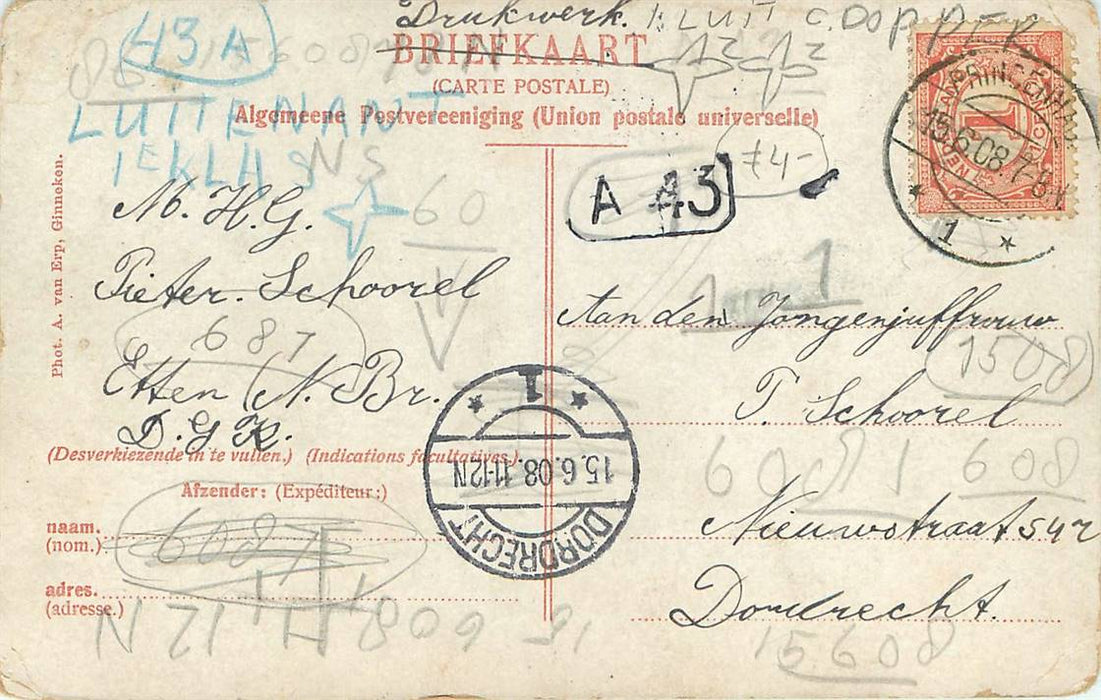 Drukwerk. KLUIT C. DOPPER
BRIEFKAART
(CARTE POSTALE)
Algemeene Postvereeniging (Union postale universelle)
43 A
LUITENANT
1E KLAS
NS
60
M. H. G.
Pieter. Schoorel
687
Etten (N. Br.
D. G. K.
(Desverkiezende in te vullen.) (Indications facultatives.)
Afzender: (Expéditeur:)
naam.
(nom.)
6087
adres.
(adresse.)
Phot. A. van Erp, Ginneken.
A 43
74-
PRINCENHAGE
15.6.08. 7-8
1
1
Aan den Jongenjuffrouw
1508
T. Schoorel
608 1 608
Nieuwstraat 542
Dordrecht.
15608
1
15.6.08. 11-12N
DORDRECHT
15 608 11 12 N